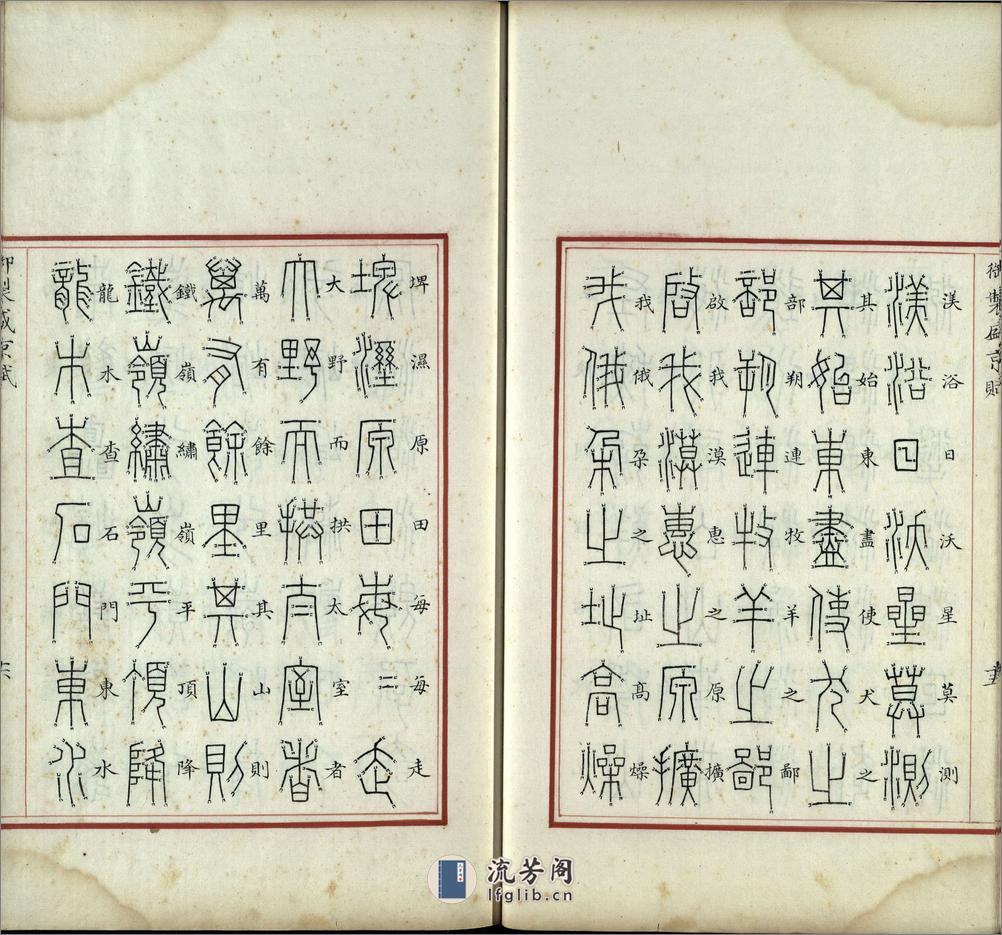 御製盛京賦
渼浴日沃星莫測
其始東盡使犬之
部朔連牧羊之鄙
啟我漠惠之原擴
我俄朵之址高燥
埤濕原田每每走
大野而拱太室者
萬有餘里其山則
鐵嶺繡嶺平頂降
龍木查石門東水
御製盛京賦
流芳阁
lfglib.cn